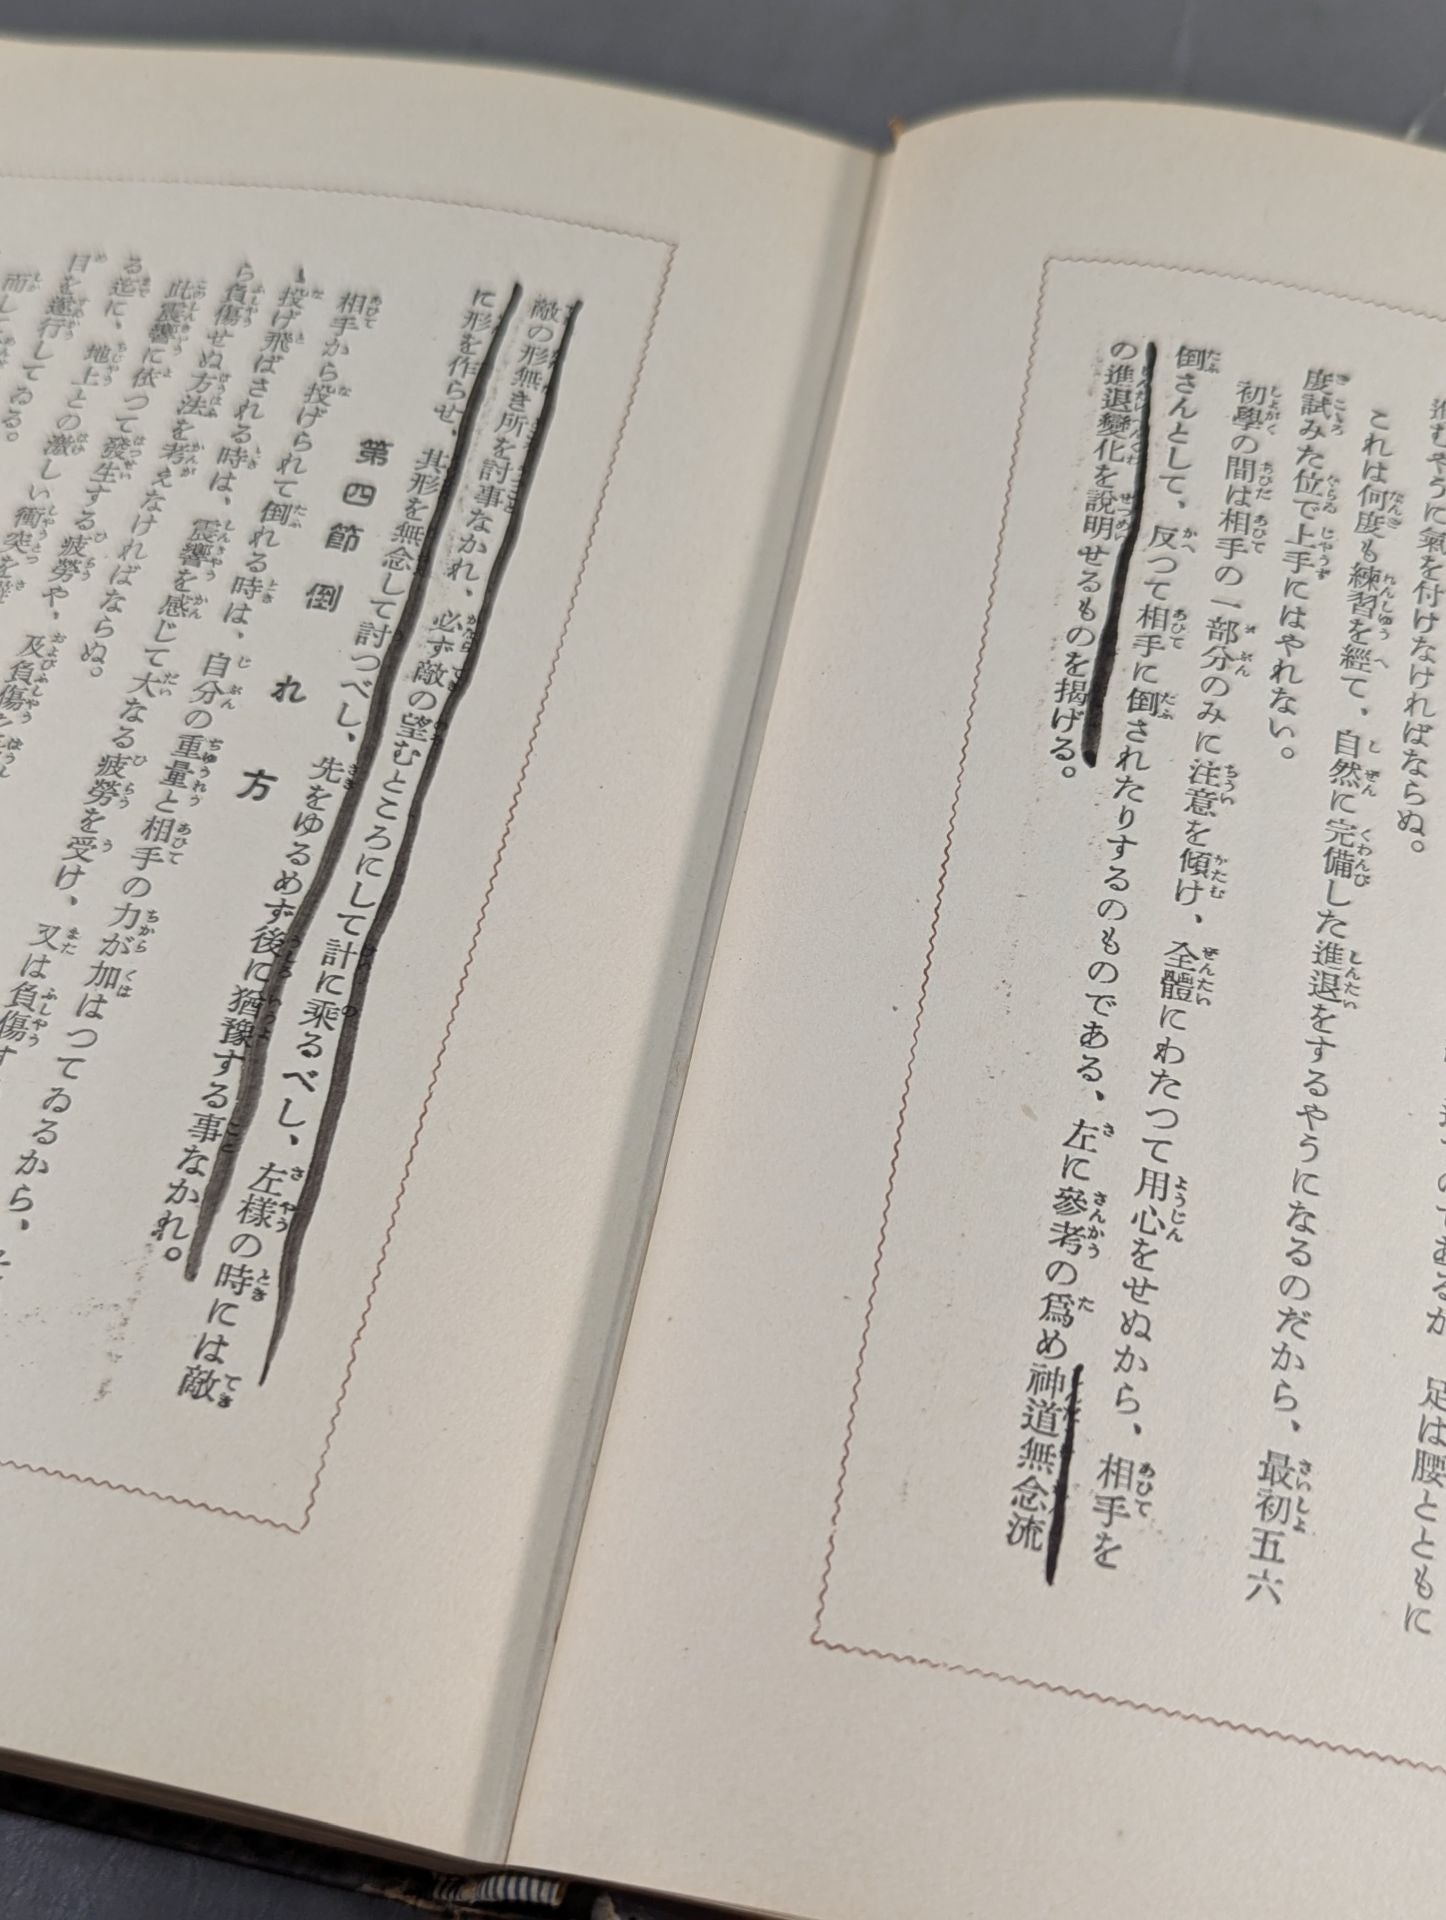 進むやうに氣を付けなければならぬ。
これは何度も練習を經て、自然に完備した進退をするやうになるのだから、最初五六
度試みた位で上手にはやれない。
初學の間は相手の一部分のみに注意を傾け、全體にわたつて用心をせぬから、相手を
倒さんとして、反つて相手に倒されたりするのものである、左に參考の爲め神道無念流
の進退變化を說明せるものを揭げる。
敵の形無き所を討事なかれ、必ず敵の望むところにして計に乘るべし、左樣の時には敵
に形を作らせ、其形を無念して討つべし、先をゆるめず後に猶豫する事なかれ。
第四節 倒れ方
相手から投げられて倒れる時は、自分の重量と相手の力が加はつてゐるから、
投げ飛ばされる時は、震響を感じて大なる疲勞を受け、又は負傷す
ら負傷せぬ方法を考えなければならぬ。
此震響に依つて發生する疲勞や、及負傷
る迄に、地上との激しい衝突を
目を遂行してゐる。
而して
足は腰とともに